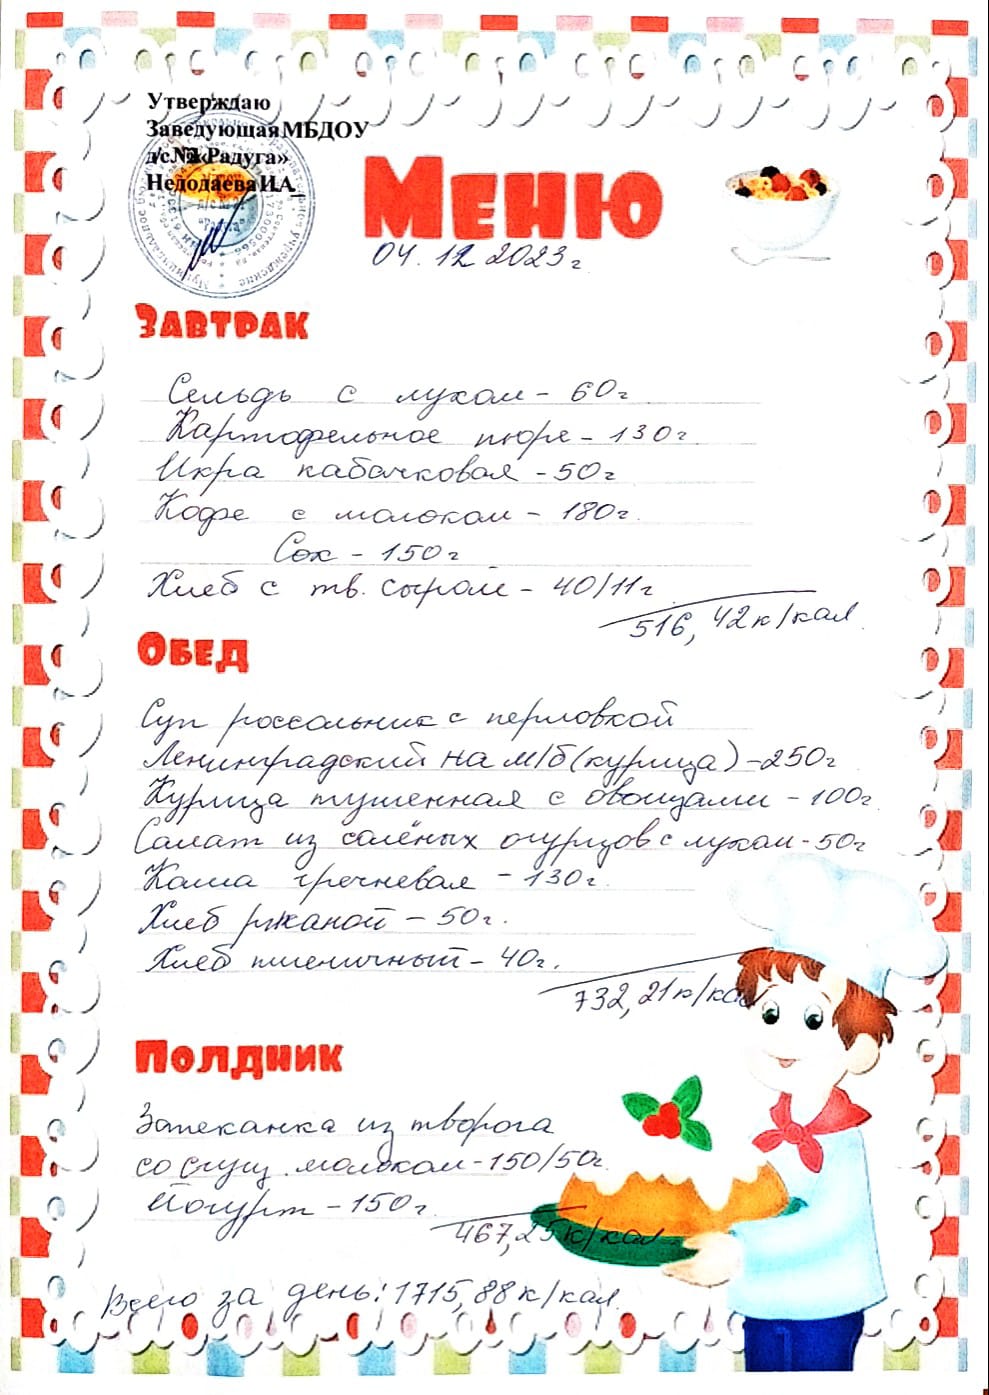 Утверждаю
Заведующая МБДОУ
д/с №2 «Радуга»
Недодаева И.А.
Меню
04.12 2023 г.
Завтрак
Сельдь с луком - 60г
Картофельное пюре - 130г.
Икра кабачковая - 50г
Кофе с молоком - 180г.
Сок - 150г
Хлеб с тв. сыром - 40/11г
516,42 к/кал
Обед
Суп россольник с перловкой
Ленинградский на м/б (курица) - 250г
Курица тушенная с овощами - 100г.
Салат из солёных огурцов с луком - 50г
Каша гречневая - 130г.
Хлеб ржаной - 50г.
Хлеб пшеничный - 40г.
732,21 к/кал
Полдник
Запеканка из творога
со сгущ. молоком - 150/50г.
Йогурт - 150г.
467,25 к/кал
Всего за день: 1715,88 к/кал.